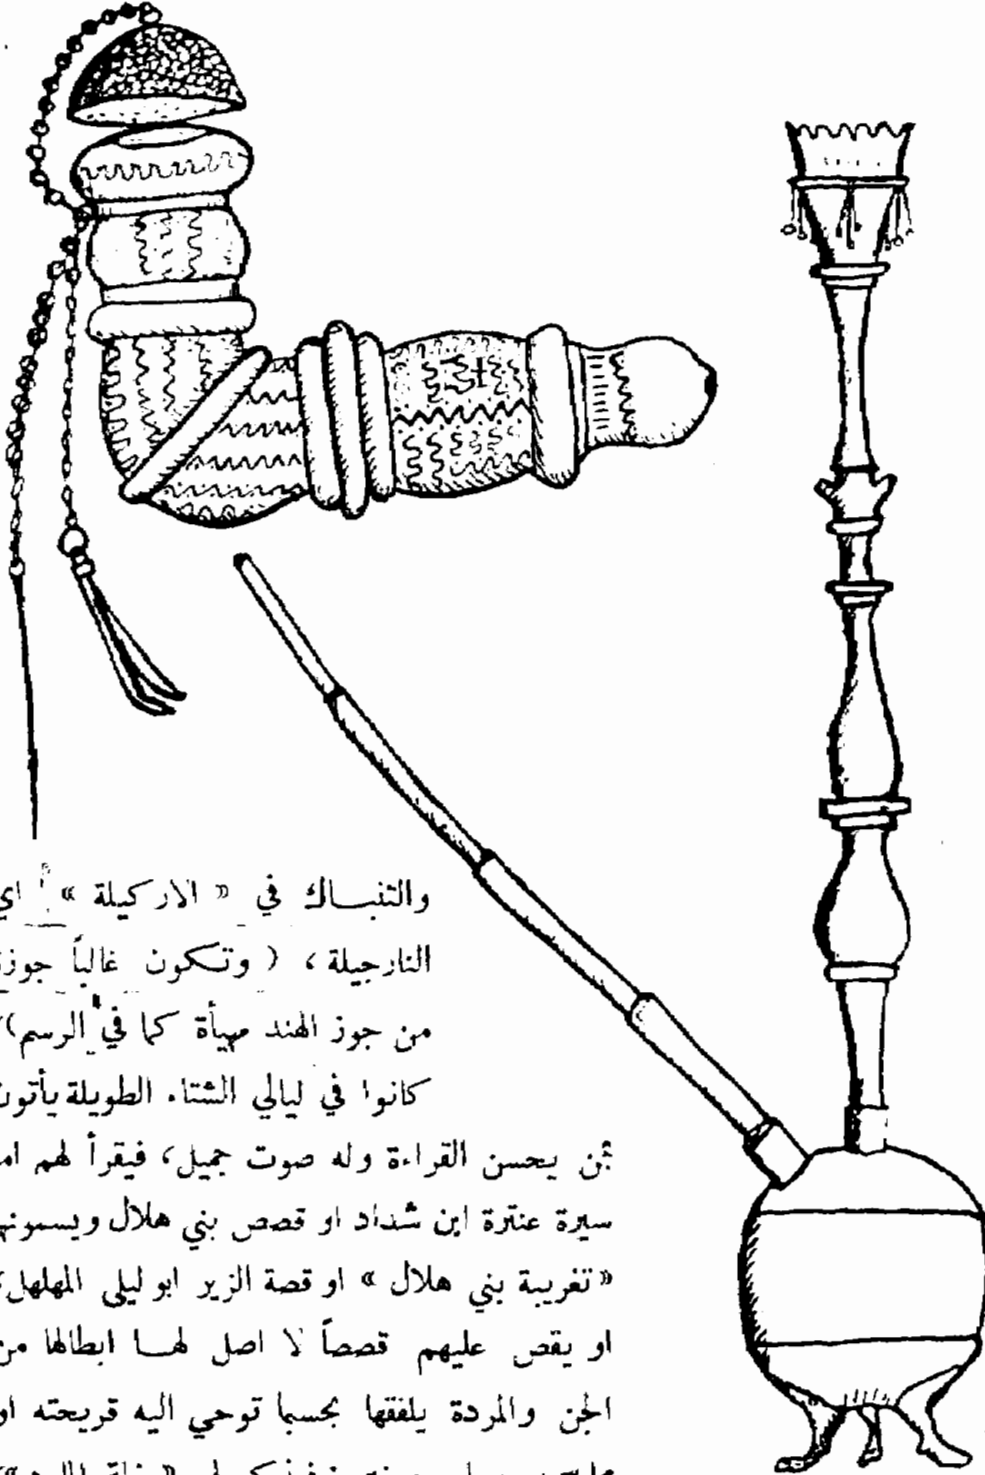 والتنبـــاك في « الاركيلة » اي
النارجيلة ، ( وتكون غالباً جوزة
من جوز الهند مهيأة كما في الرسم)
كانوا في ليالي الشتاء الطويلة يأتون
بمن يحسن القراءة وله صوت جميل، فيقرأ لهم اما
سيرة عنترة ابن شداد او قصص بني هلال ويسمونها
« تغريبة بني هلال » او قصة الزير ابو ليلى المهلهل،
او يقص عليهم قصصاً لا اصل لهــا ابطالها من
الجن والمردة يلفقها بحسبما توحي اليه قريحته او